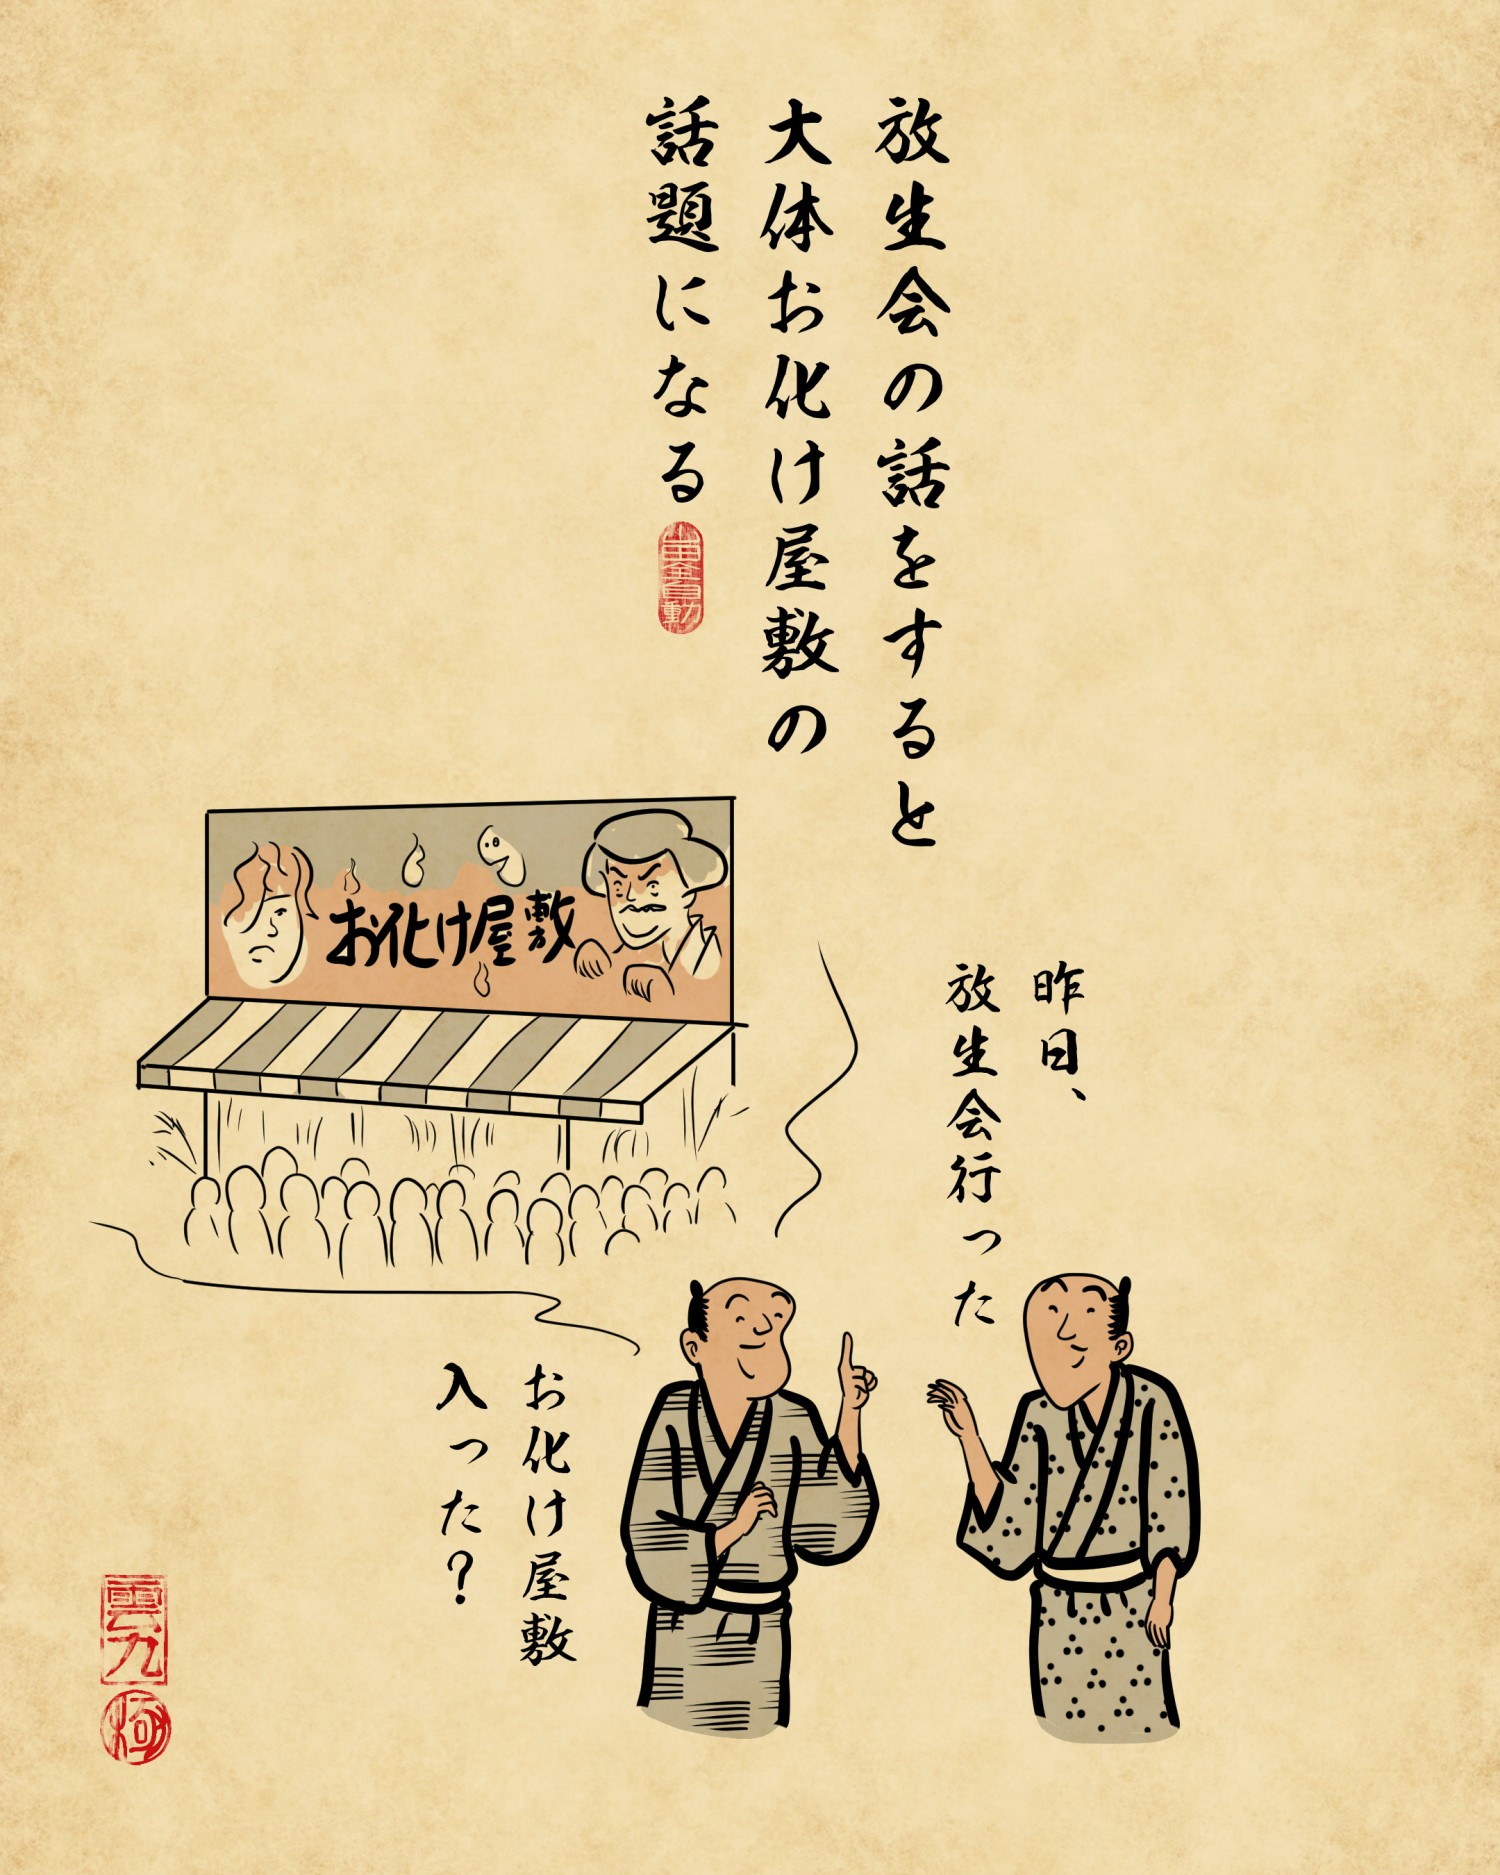 放生会の話をすると
大体お化け屋敷の
話題になる
お化け屋敷
昨日、
放生会行った
お化け屋敷
入った?
雲丸
極